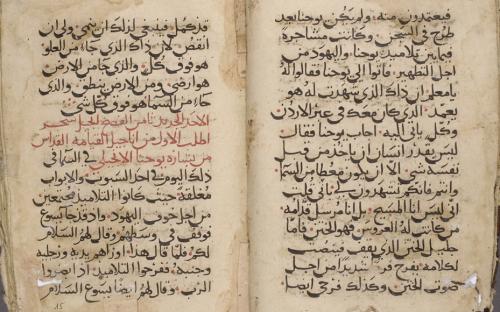 فيعتمدون منه. ولم يكن يوحنا بعد
طرح في السجن وكانت مشاجرة
فيما بين تلاميذ يوحنا واليهود من
اجل التطهير. فاتوا الي يوحنا فقالوا له
يا معلم ان ذاك الذي شهدت له هو
يعمد. الذي كان معك في عبر الاردن
وكل ياتي اليه. اجاب يوحنا فقال
ليس يقدر انسان ان ياخذ من قبل
نفسه شي الا ان يكون معطا من السما.
وانتم فانكم تشهدون لي باني قلت
اني لست انا المسيح. بل انا مرسل قدامه.
من كانت له العروس فهو الختن فاما
خليل الختن الذي يقف فينصت
لكلامه يفرح فرح شديدا من اجل
صوت الختن. وكذلك فرحي ايضا
قد كمل فينبغي لذلك ان ينمي ولي ان
انقص لان ذاك الذي جاء من العلو
هو فوق كل. والذي جاء من الارض
هو ارضي. ومن الارض ينطق والذي
جاء من السما هو فوق كل شي.
الاحد الجديد ثامن الفصح
الاول من اناجيل القيامه
من بشارة يوحنا الانجيلي في المسا في
ذلك اليوم في احد السبوت والابواب
مغلقة حيث كانوا التلاميذ مجتمعين
من اجل خوف اليهود. واذ قد جا يسوع
فوقف في وسطهم وقال لهم السلام
لكم فلما قال هذا. اوراهم يديه ورجليه
وجنبه. ففرحوا التلاميذ اذ ابصروا
الرب. وقال لهم ايضا يسوع السلام
15